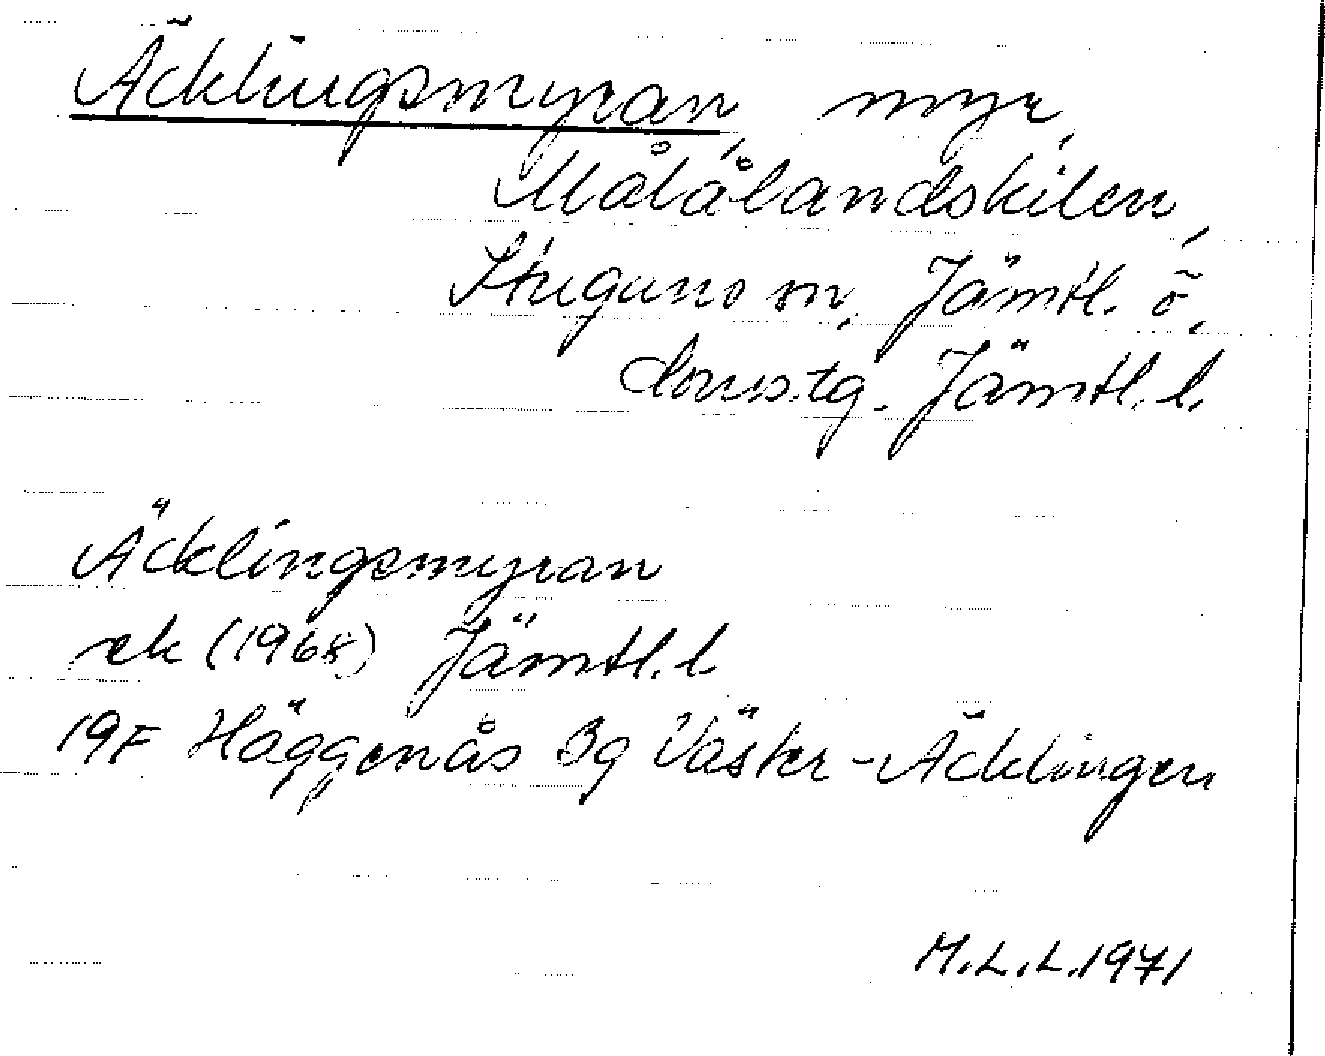 Äcklingsmyran, myr,
Målålandskilen,
Stuguns sn, Jämtl. ö.
domstg. Jämtl. l.
Äcklingsmyran
ek (1968) Jämtl. l
19F Häggenås 3g Väster-Äcklingen
M.L.L.1971